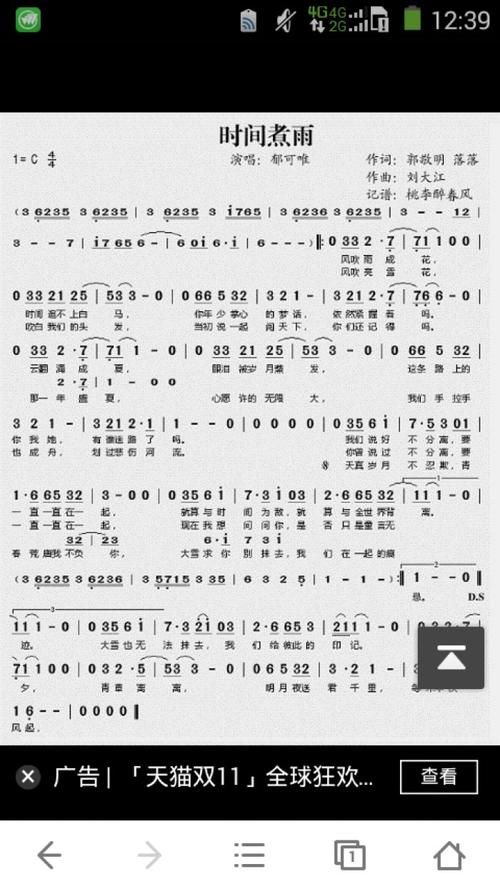 4G 4G 2G 12:39
时间煮雨
1=C 4/4 演唱：郁可唯 作词：郭敬明 落落
作曲：刘大江
记谱：桃李醉春风
(3 6235 3 6235 | 3 6235 3 i765 | 3 6236 3 6235 | 3 - - 12 |
3 - - 7 | i7 656 - | 6 0i 6·i | 6 - - - ):‖: 0 33 2·7 | 71 1 0 0 |
风吹雨成 花，
风吹亮雪 花，
0 33 21 25 | 53 3 - 0 | 0 66 5 32 | 3 21 - | 3 21 2·7 | 76 6 - 0 |
时间 追不上白 马， 你年少掌心 的梦话， 依然紧握 着 吗。
吹白我们的头 发， 当初说一起 闯天下， 你们还记得 吗。
0 33 2·7 | 71 1 - 0 | 0 33 21 25 | 53 3 - 0 | 0 66 5 32 |
云翻涌成 夏， 眼泪被岁月蒸 发， 这条路上的
2·7 | 1 - 0 0
那一年盛 夏， 心愿许的无限 大， 我们手拉手
3 21 - | 3 21 2·1 | 1 - - 0 | 0 0 0 0 | 0 35 6 i | 7·5 3 01 |
你我她， 有谁迷路了 吗。 我们说好 不分离，要
也成舟， 划过悲伤河 流。 你曾说过 不分离，要
天真岁月 不忍欺，青
1·6 65 32 | 3 - 0 0 | 0 35 6 i | 7·3 i 03 | 2·6 65 32 | 11 1 - 0 |
一直一直在一 起， 就算与时 间为敌，就 算与全世界背 离。
一直一直在一 起， 现在我想 问问你，是 否只是童言无
32 | 23 6·i 7 3 i
春荒唐我不负 你， 大雪求你 别抹去，我 们在一起的痕
(3 6235 3 6236 | 3 5715 3 35 | 6 3 2 5 | 1 - 1 - ):‖ 1 - - 0 ‖
忌。 D.S
11 1 - 0 | 0 35 6 i | 7·3 21 03 | 2·6 65 3 | 211 1 - 0 |
迹。 大雪也无 法抹去，我 们给彼此的 印记。
71 1 0 0 | 0 3 2·5 | 53 3 - 0 | 0 65 5 32 | 3·2 1 -
夕， 青草离 离， 明月夜送 君千里，
1 6 - - | 0 0 0 0 ‖
风起，
广告 | 「天猫双11」全球狂欢...
查看
1